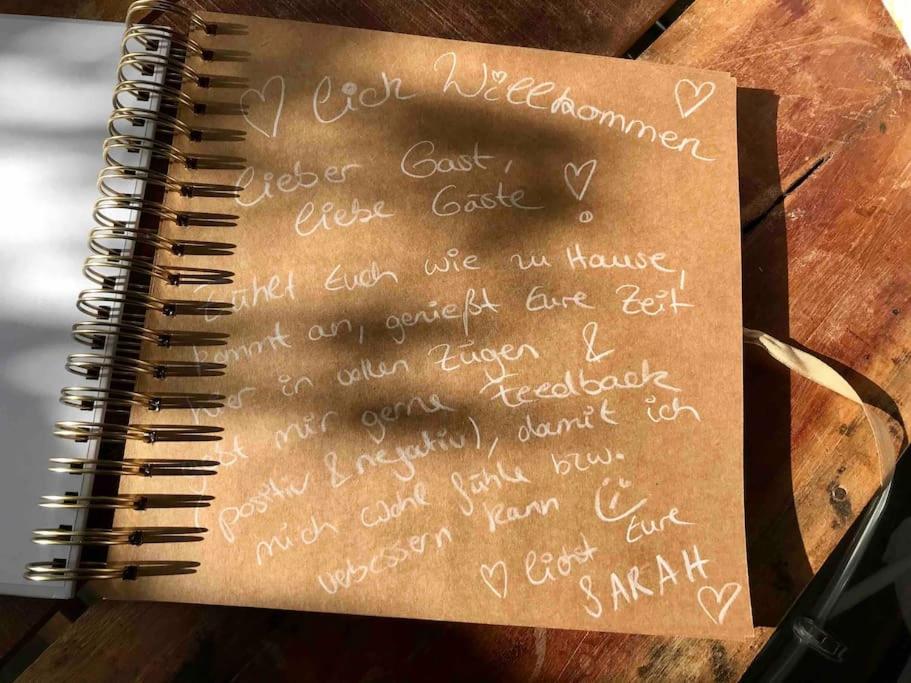 ♡ lich Willkommen ♡
Lieber Gast,
liebe Gäste ♡!
Fühlt Euch wie zu Hause,
kommt an, genießt Eure Zeit
hier in vollen Zügen &
gebt mir gerne Feedback
(positiv & negativ), damit ich
mich wohl fühle bzw.
verbessern kann ☺
♡ lichst Eure
SARAH ♡